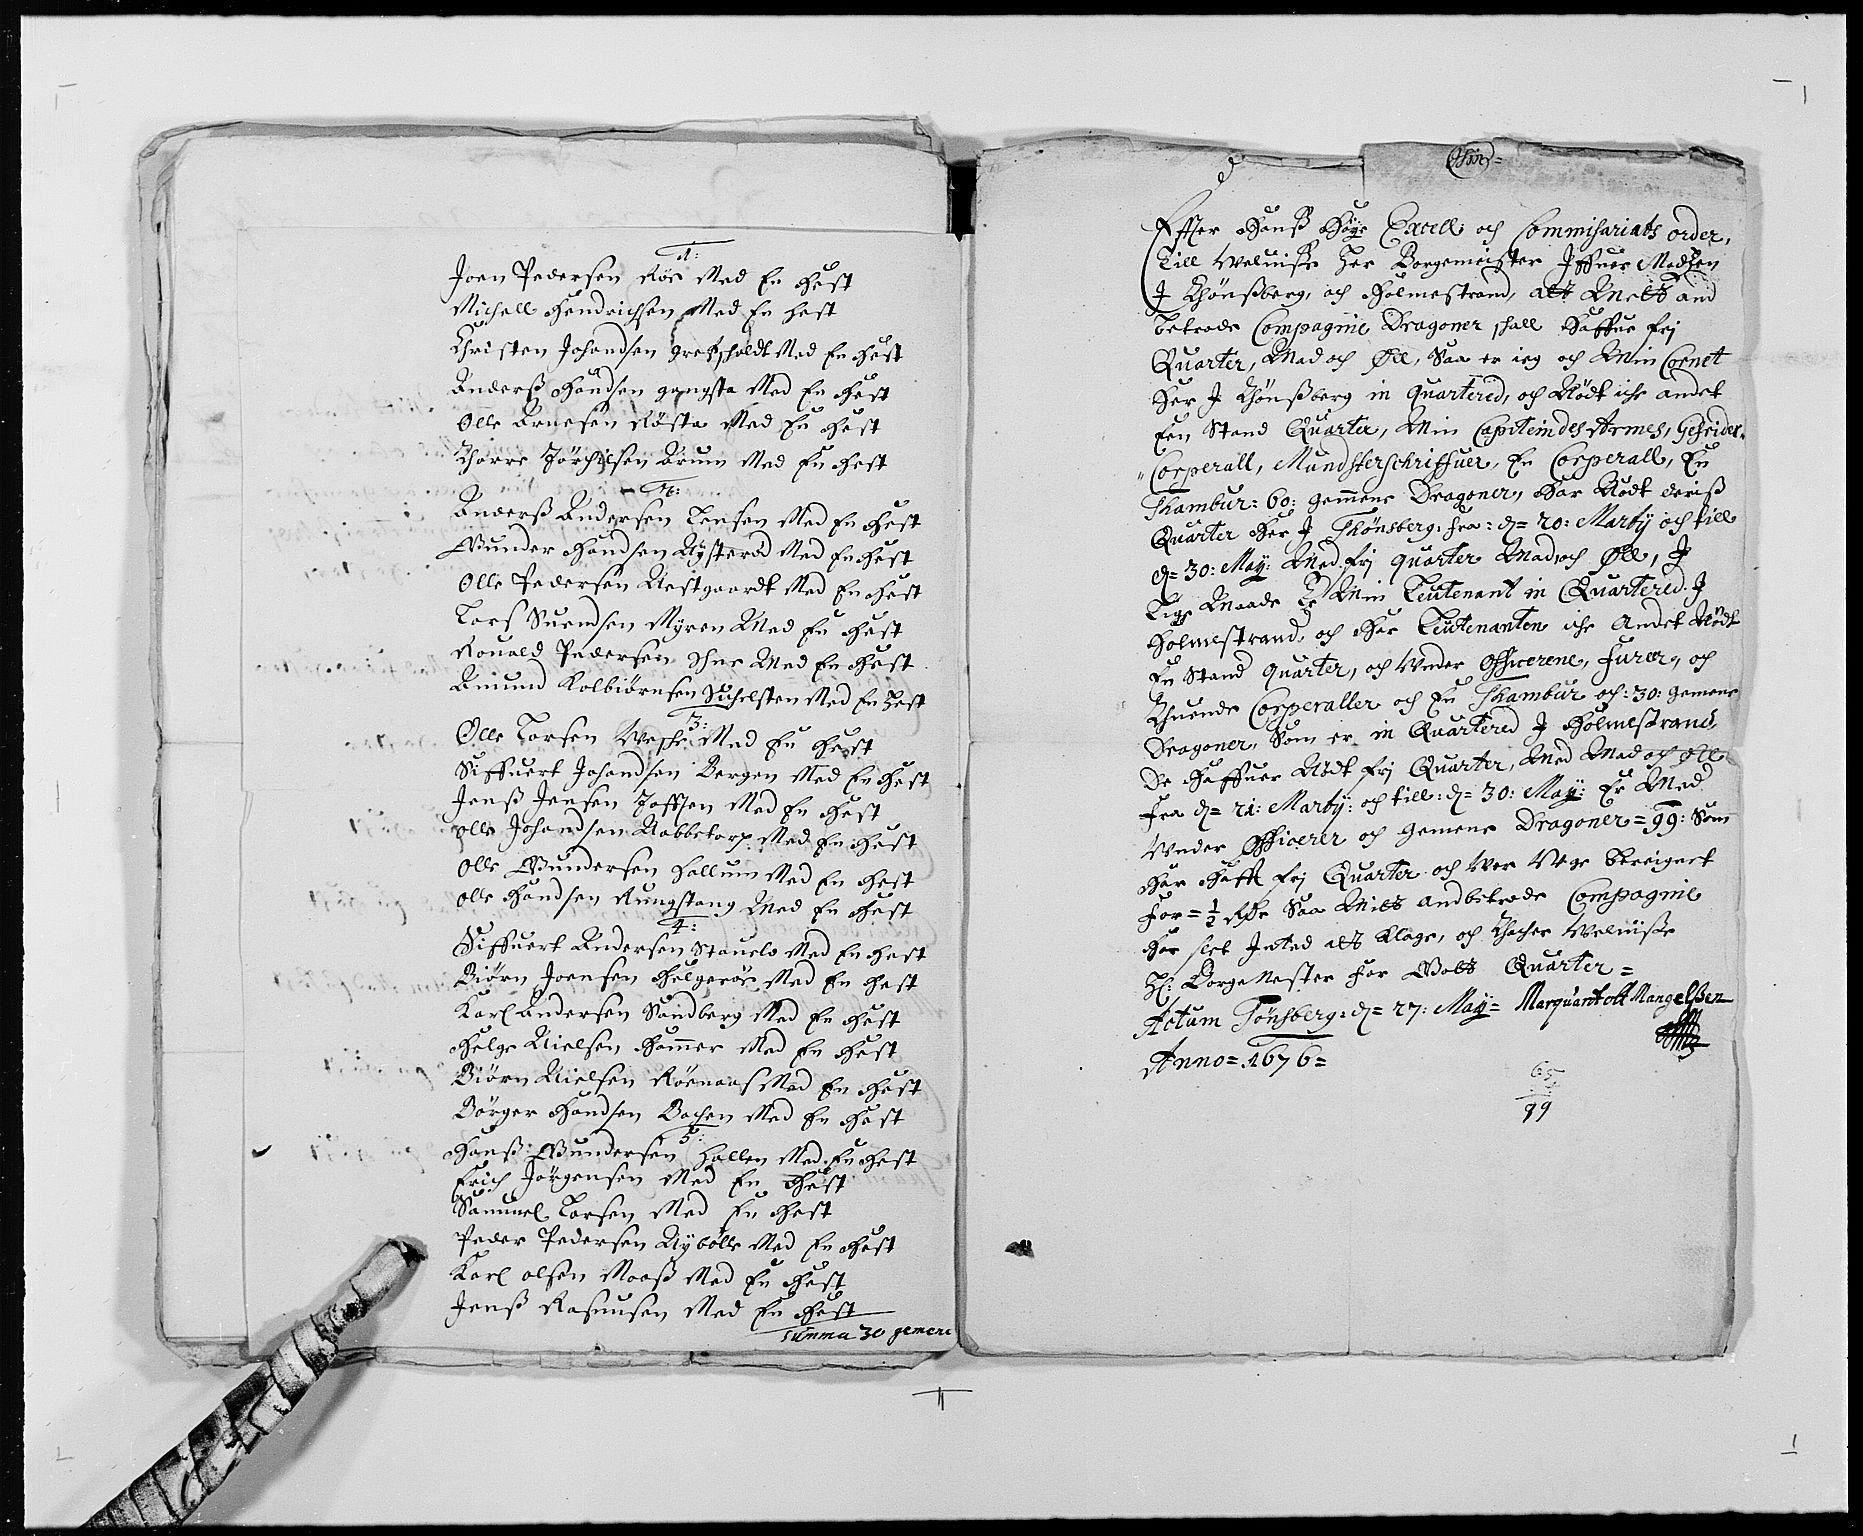 1:
Joen Pedersen Röe Med En Hest
Michell Hendrichsen Med En Hest
Christen Johandsen Med En Hest
Anderß Handsen gangsta Med En Hest
Olle Arnesen Rösta Med En Hest
Thorre Jörgilsen Brum Med En Hest
2:
Anderß Andersen Lensen Med En Hest
Gunder Handsen Nÿsteröd Med En Hest
Olle Pedersen Vestgaardt Med En Hest
Lars Suendsen Myren Med En Hest
Rouald Pedersen Med En Hest
Amund Kolbiörnsen Med En Hest
3:
Olle Larsen Med En Hest
Siffuert Johandsen Bergen Med En Hest
Jenß Jensen Med En Hest
Olle Johandsen Rabbetorp Med En Hest
Olle Gundersen Hallum Med En Hest
Olle Handsen Rungstang Med En Hest
4:
Siffuert Andersen Med En Hest
Biörn Joensen Helgeröe Med En Hest
Karl Andersen Sandberg Med En Hest
Helge Nielsen Hammer Med En Hest
Biörn Nielsen Röenaas Med En Hest
Börger Handsen Bachen Med En Hest
5:
Hanß Gundersen Hallen Med En Hest
Erich Jörgensen Med En Hest
Samuel Larsen Med En Hest
Peder Pedersen Nÿbölle Med En Hest
Karl Olsen Moaß Med En Hest
Jenß Rasmusen Med En Hest
Summa 30 gemene
Effter Hanß Höÿe Excell: och Commisariats order,
Till Weluiße Her Borgemeister Iffuer Madsen
J Thönßberg, och Holmestrand, att Mit and
betrode Compagnie Dragoner skall Haffue frj
Quarter, Mad och Öll, Saa er ieg och Min Cornet
Her J Thönßberg in quartered, och Nödt iche andet
Een Stand Quarter, Min Capiteindes Armes, Gefreider-
Corperall, Mundsterschriffuer, En Corperall, En
Thambur: 60: gemene Dragoner, Har Nödt deriß
Quarter Her J Thönsberg: fra: d= 20: Martÿ och till
d= 30: Maÿ: Med frj quarter Mad och Öll, J
Lige Maade Er Min Leutenant in Quartered J
Holmestrand, och Har Leutenanten iche Andet Nödt
En Stand quarter, och Vnder Officerene, Furer, och
Thuende Corperaller och En Thambur och: 30: gemene
Dragoner, Som er in Quartered J Holmestrand
De Haffuer Nödt frj Quarter, Med Mad och Öll
Fra d= 21: Martÿ: och till: d= 30: Maÿ: Er Med
Vnder Officerer och Gemene Dragoner = 99: Som
Har Hafft frj Quarter och Wer Vge Bereignet
For = ½ Rdr Saa Mit andbetrode Compagnie
Har slet Inted att Klage, och Thacher Weluiße
H: Borge Mester For Got Quarter =
Actum Tönsberg: d= 27: Maÿ= Marquart olt Mangelßen
Anno= 1676=
65
99